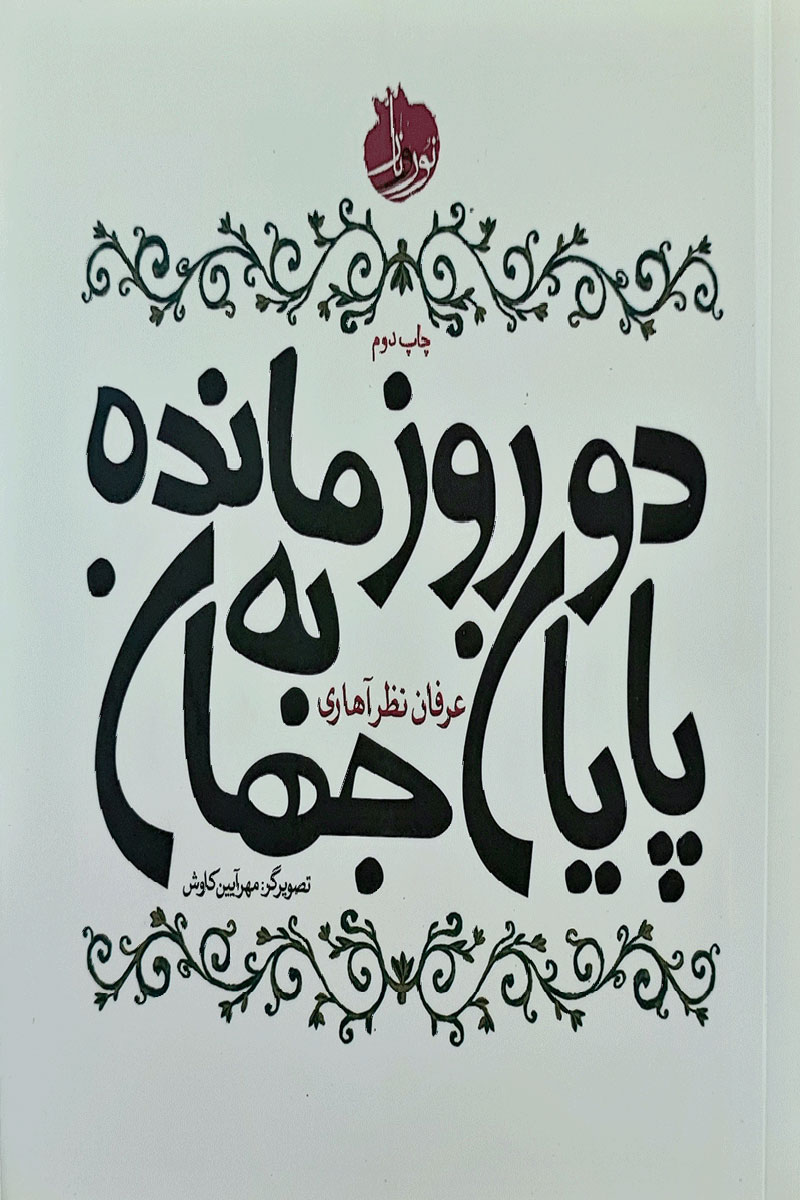 نور و نار
چاپ دوم
دو روز مانده
به پایان
جهان
عرفان نظرآهاری
تصویرگر: مهرآیین کاوش